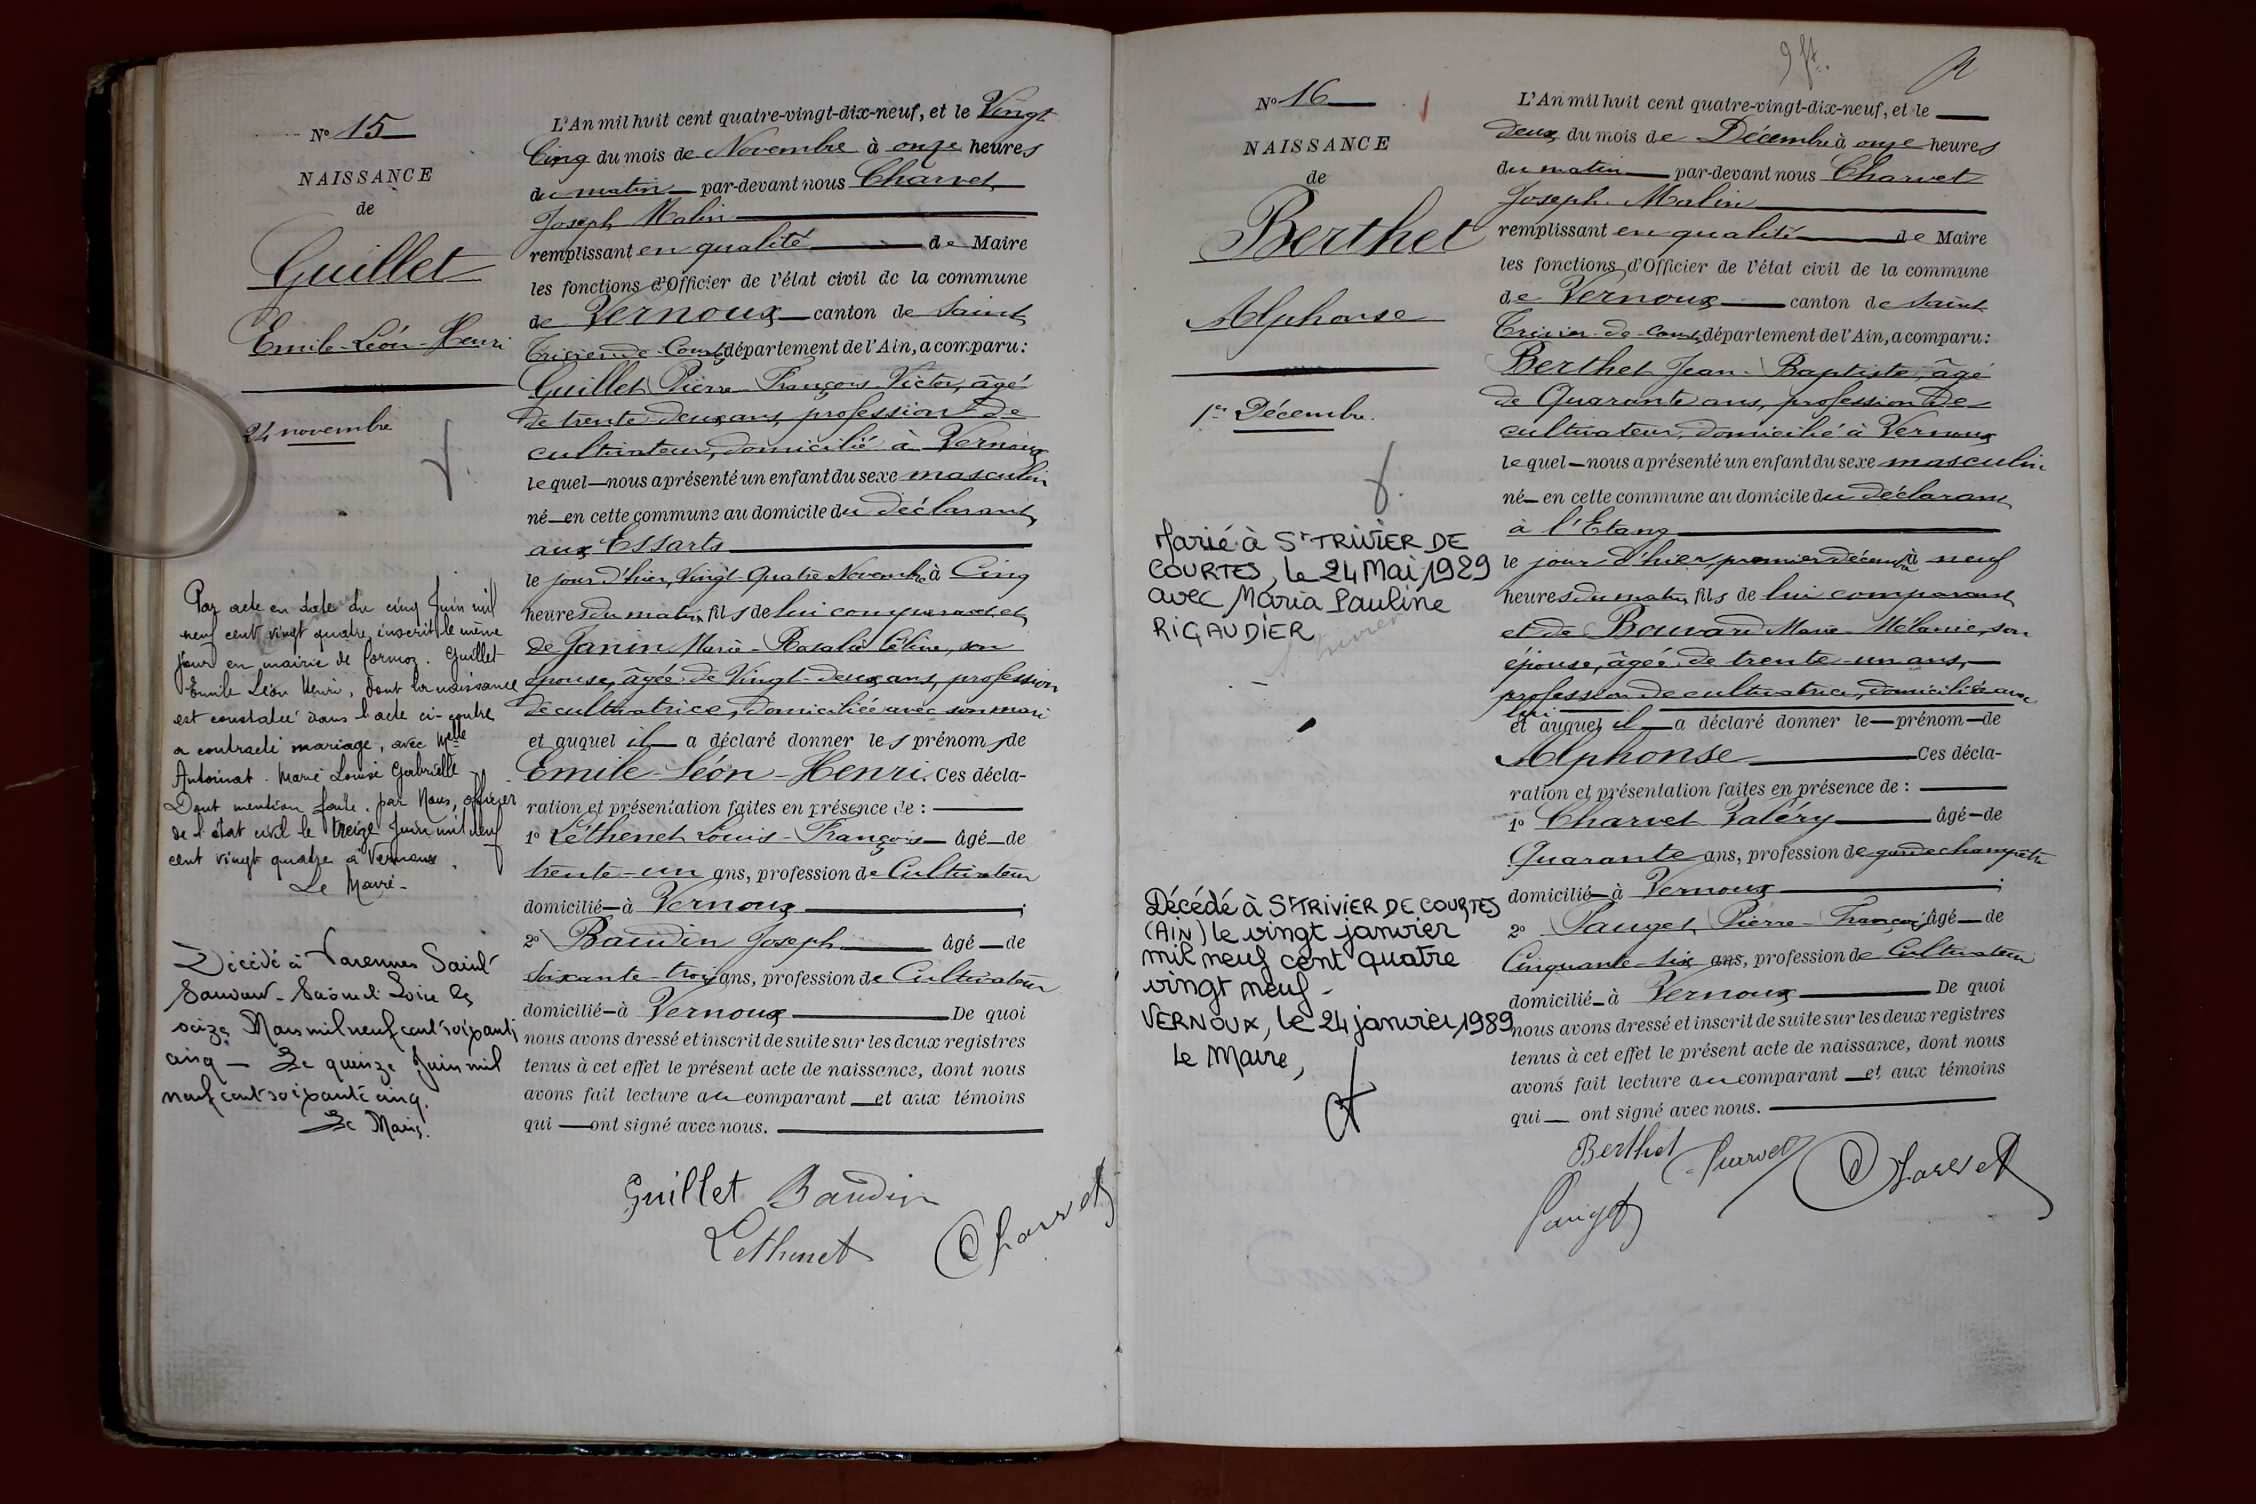 Nº 15
NAISSANCE
de
Guillet
Emile-Léon-Henri
24 novembre
Par acte en date du cinq Juin mil
neuf cent vingt quatre, inscrit le même
jour en mairie de Cormoz. Guillet
Emile Léon Henri, dont la naissance
est constatée dans l'acte ci-contre
a contracté mariage, avec Melle
Antoinat. Marie Louise Gabrielle
Dont mention faite. par Nous, officier
de l'état civil le treize Juin mil neuf
cent vingt quatre à Vernoux.
Le Maire-
Décédé à Varennes Saint
Sauveur - Saône & Loire le
seize Mars mil neuf cent soixante
cinq — Le quinze Juin mil
neuf cent soixante cinq.
Le Maire.
L'An mil huit cent quatre-vingt-dix-neuf, et le Vingt
Cinq du mois de Novembre à onze heures
du matin par-devant nous Charvet
Joseph Malin
remplissant en qualité de Maire
les fonctions d'Officier de l'état civil de la commune
de Vernoux canton de Saint
Trivier-de-Courtes département de l'Ain, a comparu:
Guillet Pierre-François-Victor, âgé
de trente-deux ans, profession de
cultivateur, domicilié à Vernoux
lequel nous a présenté un enfant du sexe masculin
né en cette commune au domicile du déclarant
aux Essarts
le jour d'hier, Vingt-Quatre Novembre à Cinq
heures du matin fils de lui comparant et
de Janin Marie-Rosalie Céline, son
épouse, âgée de Vingt-deux ans, profession
de cultivatrice, domiciliée avec son mari
et auquel il a déclaré donner les prénoms de
Emile-Léon-Henri. Ces décla-
ration et présentation faites en présence de :
1º Léthenet Louis-François âgé de
trente-un ans, profession de Cultivateur
domicilié à Vernoux ;
2º Baudin Joseph âgé de
Soixante-trois ans, profession de Cultivateur
domicilié à Vernoux De quoi
nous avons dressé et inscrit de suite sur les deux registres
tenus à cet effet le présent acte de naissance, dont nous
avons fait lecture au comparant et aux témoins
qui ont signé avec nous.
Guillet Baudin
Lethenet Charvet
9 ft.
Nº 16
NAISSANCE
de
Berthet
Alphonse
1er Décembre.
Marié à St TRIVIER DE
COURTES, le 24 Mai 1929
avec Maria Pauline
RIGAUDIER
Décédé à St TRIVIER DE COURTES
(AIN) le vingt janvier
mil neuf cent quatre
vingt neuf -
VERNOUX, le 24 janvier 1989
Le Maire,
L'An mil huit cent quatre-vingt-dix-neuf, et le
deux du mois de Décembre à onze heures
du matin par-devant nous Charvet
Joseph Malin
remplissant en qualité de Maire
les fonctions d'Officier de l'état civil de la commune
de Vernoux canton de Saint
Trivier-de-Courtes département de l'Ain, a comparu:
Berthet Jean-Baptiste, âgé
de Quarante ans, profession de
cultivateur, domicilié à Vernoux
lequel nous a présenté un enfant du sexe masculin
né en cette commune au domicile du déclarant
à l'Etang
le jour d'hier, premier décembre à neuf
heures du matin, fils de lui comparant
et de Bouvard Marie-Mélanie, son
épouse, âgée de trente-un ans,
profession de cultivatrice, domiciliée avec
lui
et auquel il a déclaré donner le prénom de
Alphonse Ces décla-
ration et présentation faites en présence de :
1º Charvet Valéry âgé de
Quarante ans, profession de garde champêtre
domicilié à Vernoux ;
2º Pauget Pierre-François âgé de
Cinquante-six ans, profession de Cultivateur
domicilié à Vernoux De quoi
nous avons dressé et inscrit de suite sur les deux registres
tenus à cet effet le présent acte de naissance, dont nous
avons fait lecture au comparant et aux témoins
qui ont signé avec nous.
Berthet Charvet Charvet
Pauget